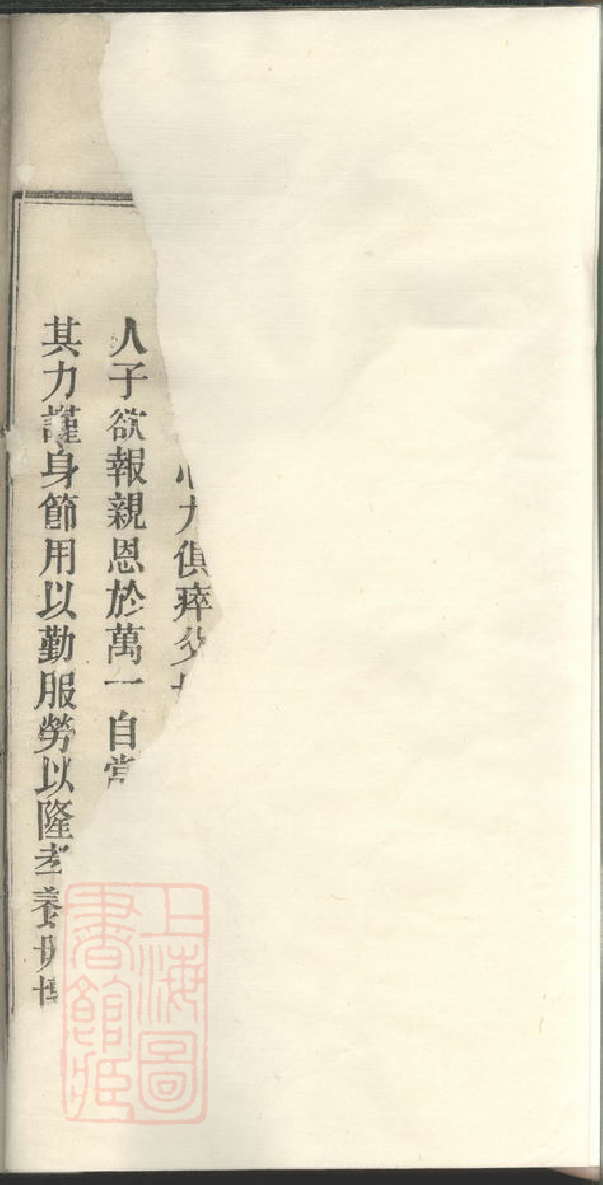 力俱瘁父
人子欲報親恩於萬一自當
其力謹身節用以勤服勞以隆孝養毋博
上海圖
書館藏